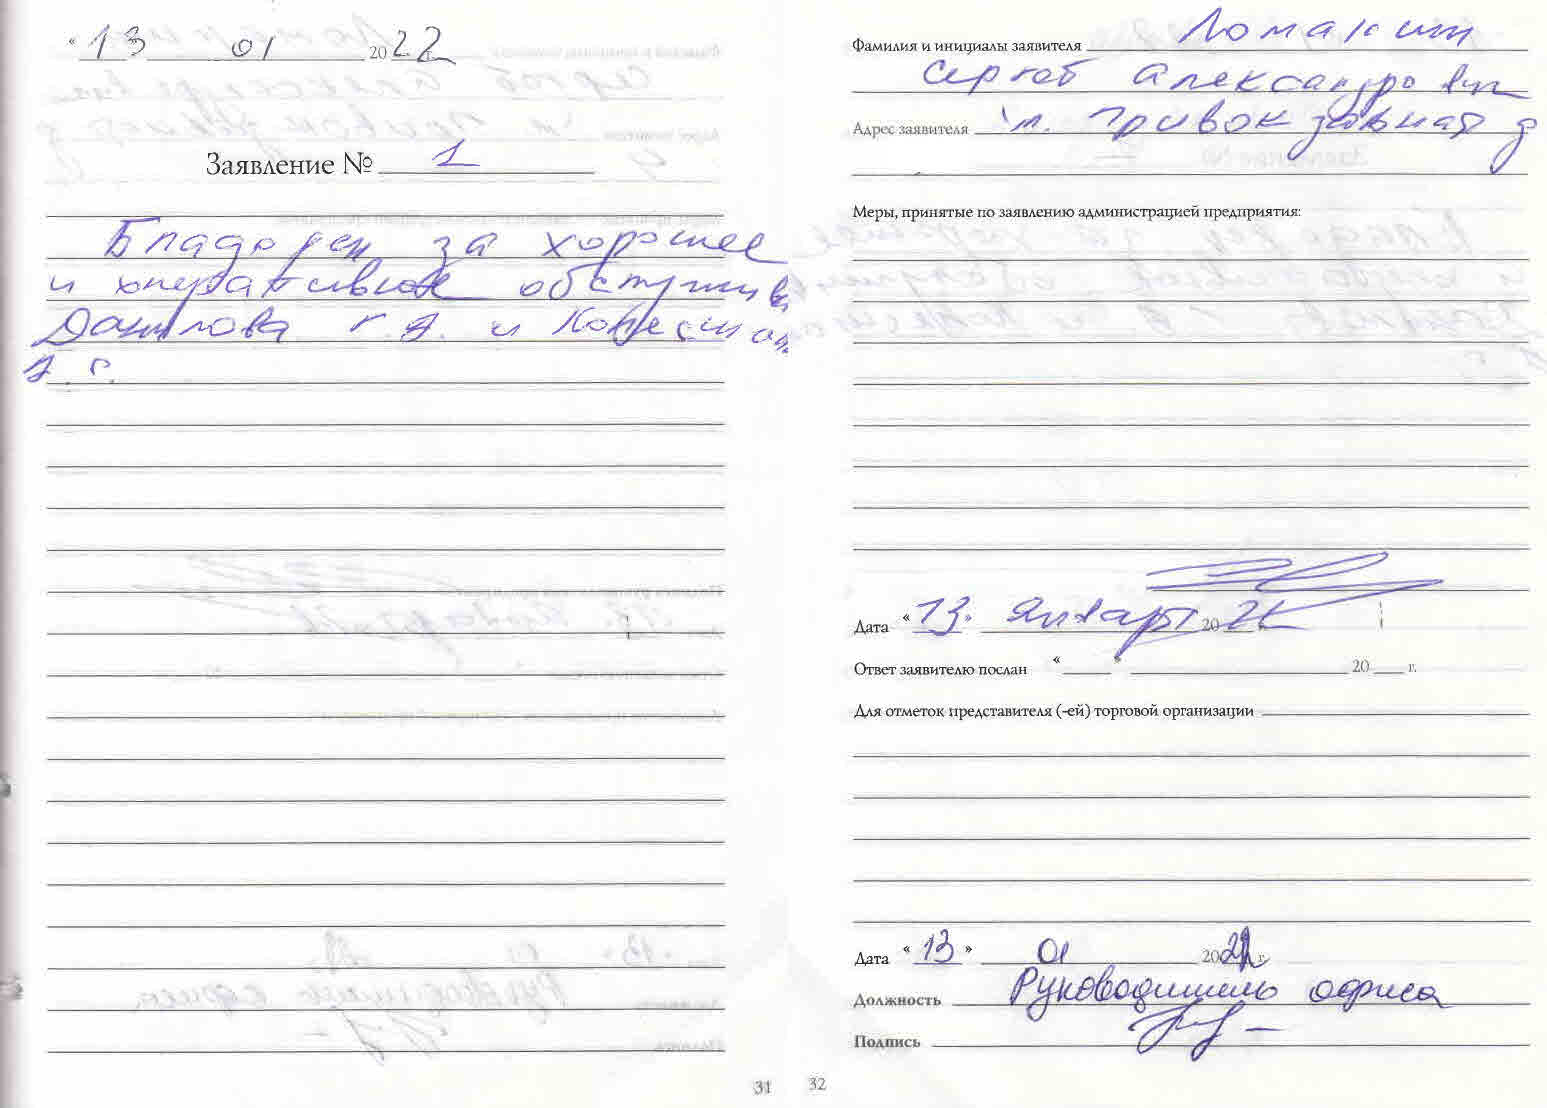 « 13 01 2022 г.
Заявление № 1
Благодарен за хорошее
и оперативное обслужива
Данилова Г.А. и Колесни
А. С.
31
Фамилия и инициалы заявителя Ломакин
Сергей Александрович
Адрес заявителя
Меры, принятые по заявлению администрацией предприятия:
Дата «13» Января 2022 г.
Ответ заявителю послан « » 20 г.
Для отметок представителя (-ей) торговой организации
Дата «13» 01 2022 г.
Должность Руководитель офиса
Подпись
32